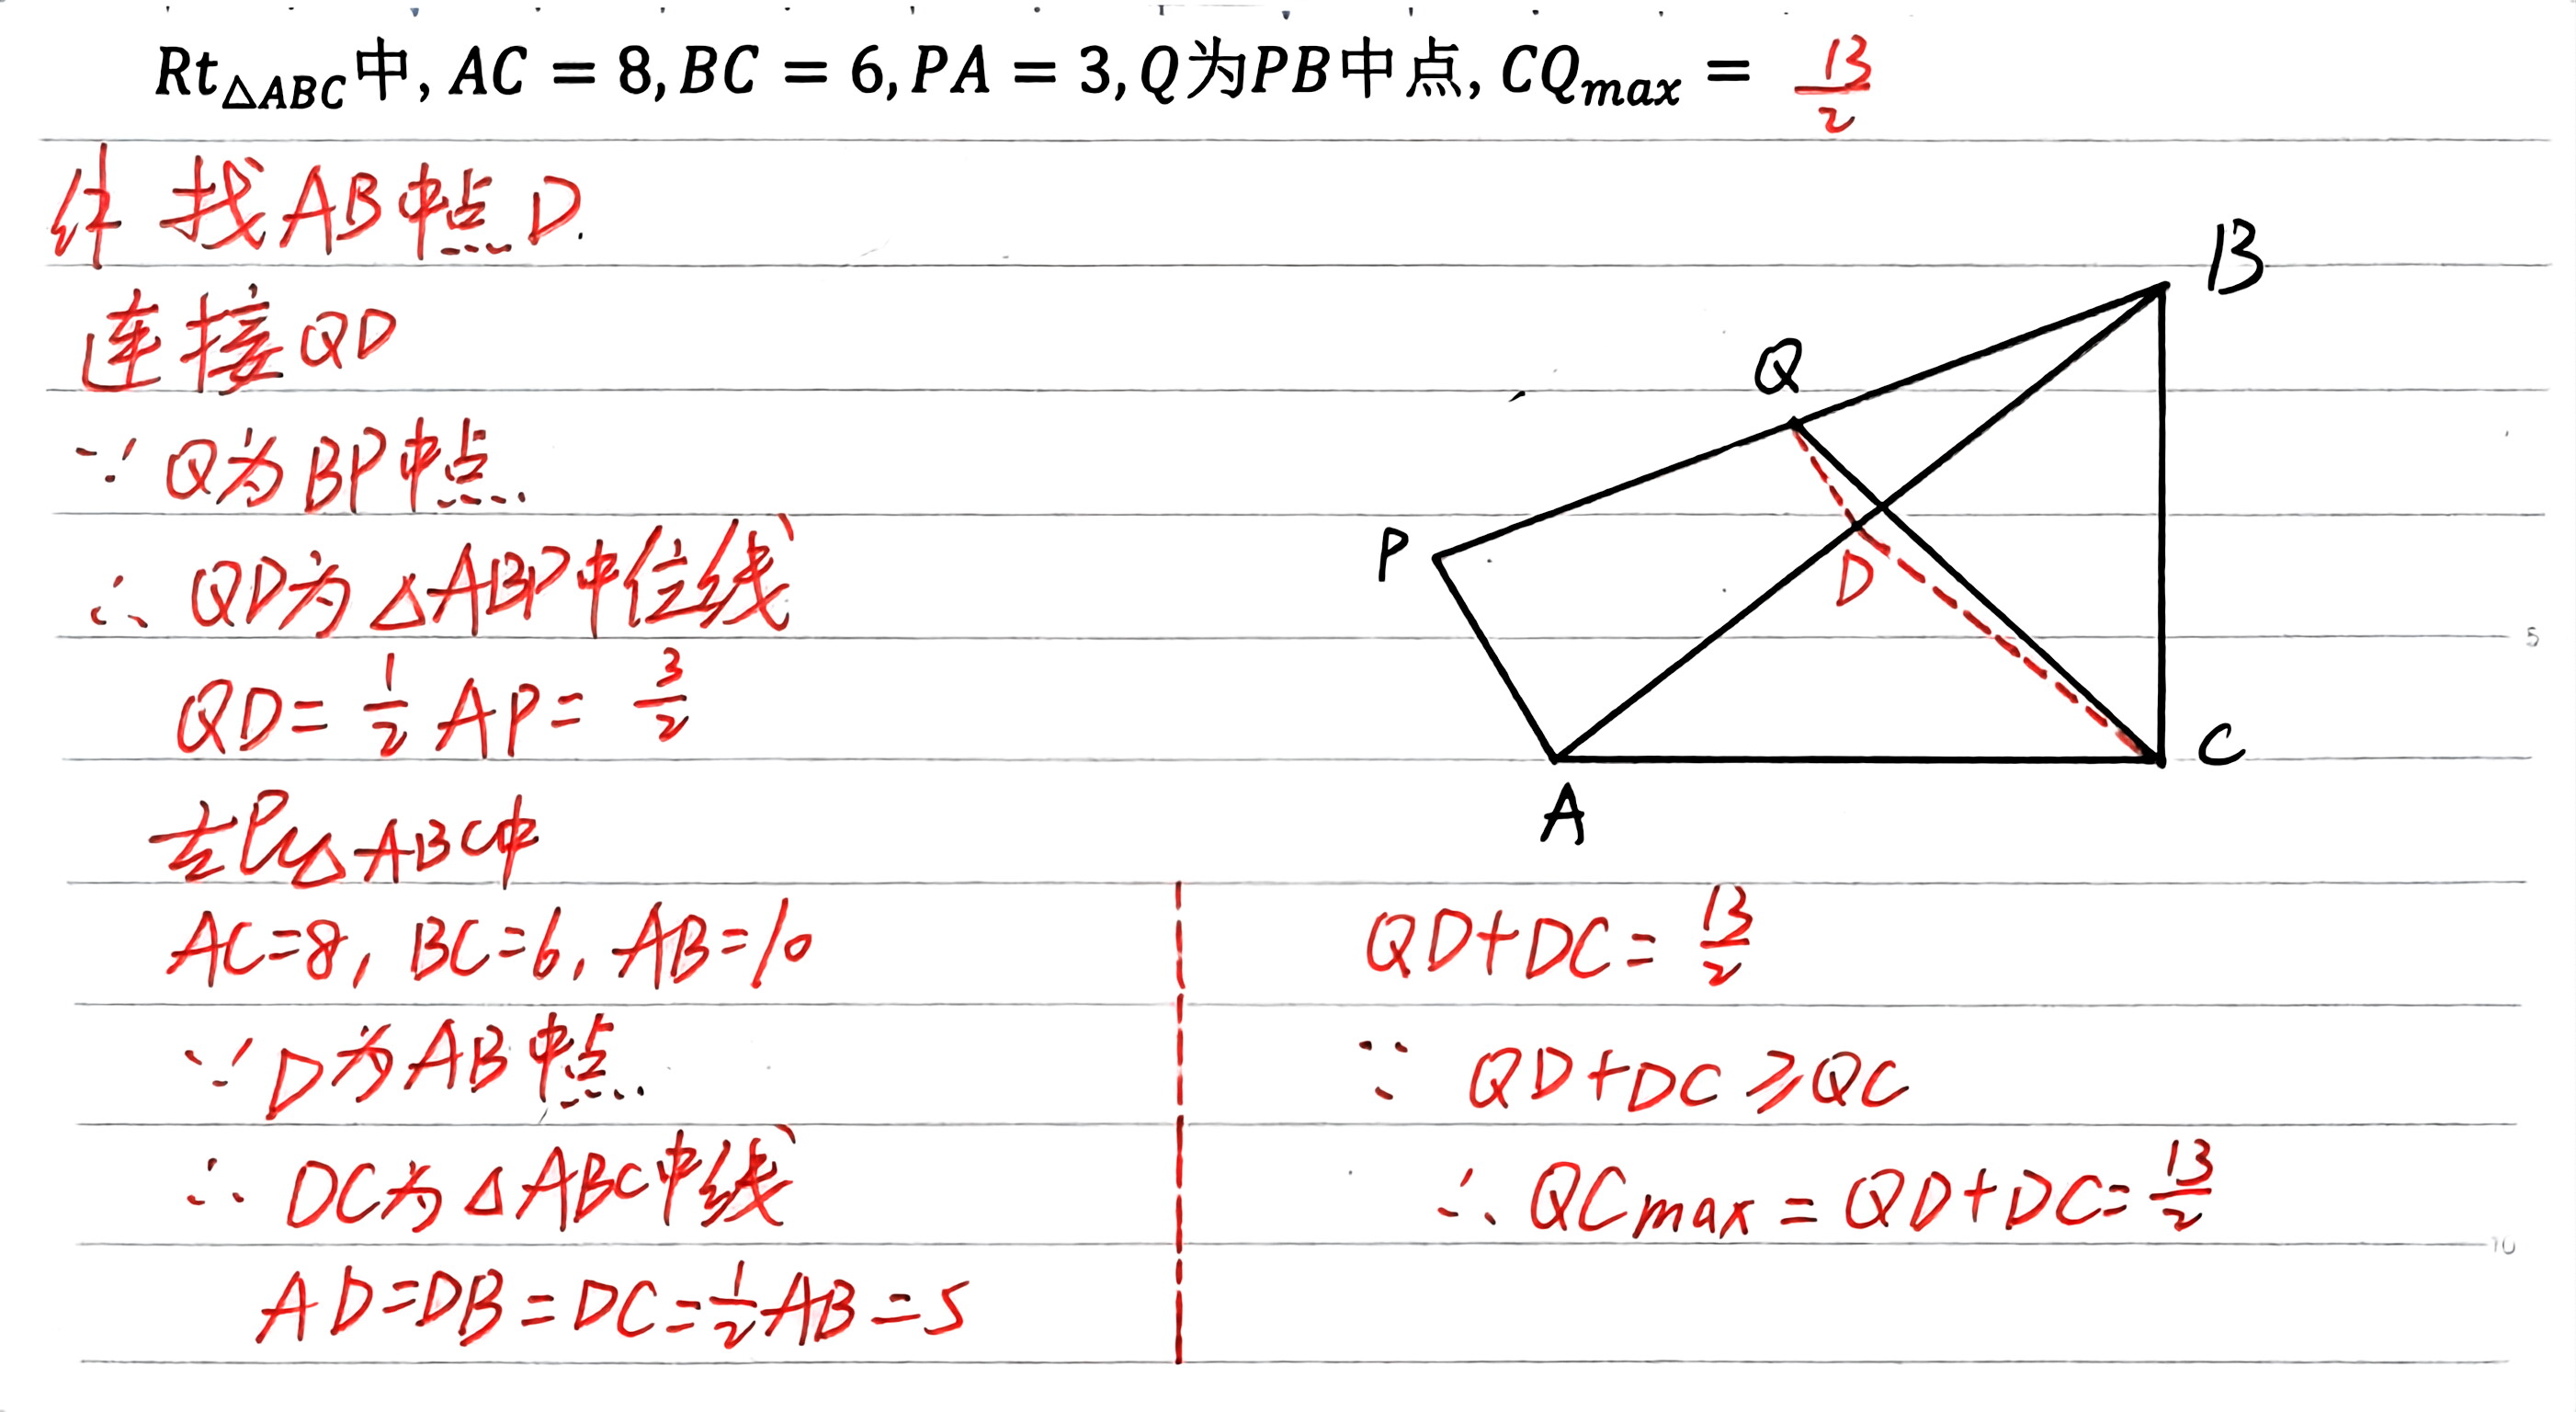 Rt△ABC中, AC = 8, BC = 6, PA = 3, Q为PB中点, CQmax = 13/2
找AB中点D.
连接QD
∵ Q为BP中点
∴ QD为△ABP中位线
QD= 1/2 AP= 3/2
在Rt△ABC中
AC=8, BC=6, AB=10
∵ D为AB中点
∴ DC为△ABC中线
AD=DB=DC=1/2AB=5
QD+DC= 13/2
∵ QD+DC≥QC
∴ QCmax = QD+DC= 13/2
B
Q
P
D
C
A
5
10